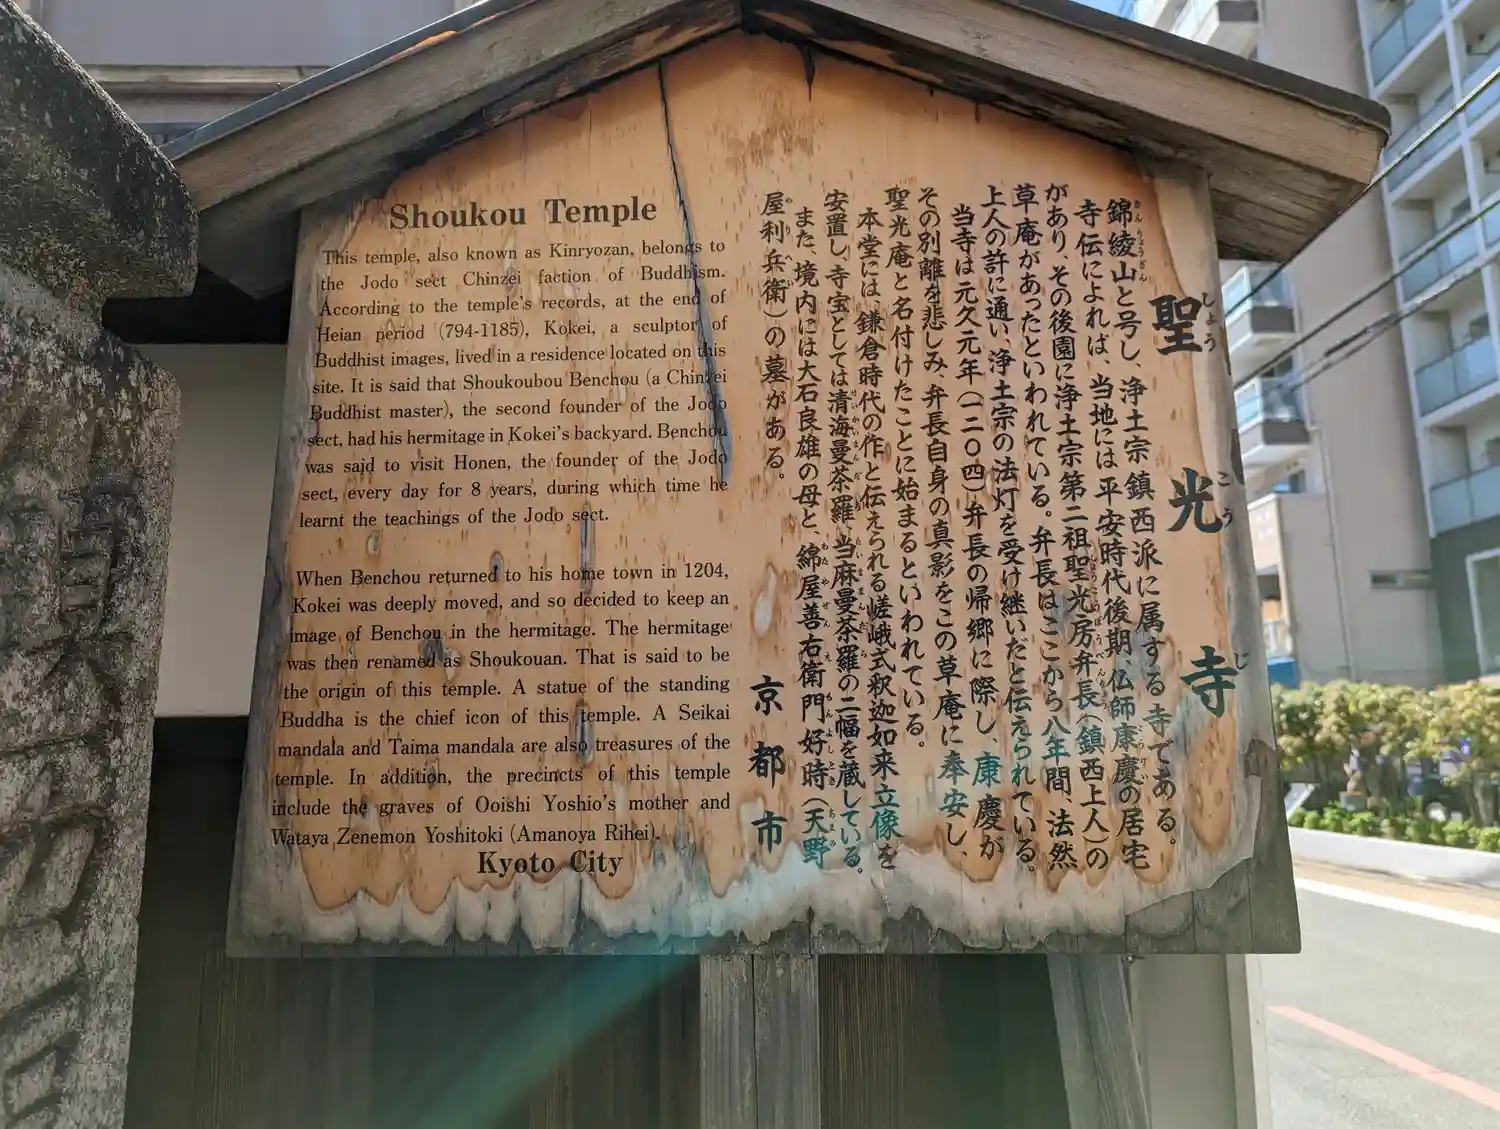 Shoukou Temple
This temple, also known as Kinryozan, belongs to
the Jodo sect Chinzei faction of Buddhism.
According to the temple's records, at the end of
Heian period (794-1185), Kokei, a sculptor of
Buddhist images, lived in a residence located on this
site. It is said that Shoukoubou Benchou (a Chinzei
Buddhist master), the second founder of the Jodo
sect, had his hermitage in Kokei's backyard. Benchou
was said to visit Honen, the founder of the Jodo
sect, every day for 8 years, during which time he
learnt the teachings of the Jodo sect.
When Benchou returned to his home town in 1204,
Kokei was deeply moved, and so decided to keep an
image of Benchou in the hermitage. The hermitage
was then renamed as Shoukouan. That is said to be
the origin of this temple. A statue of the standing
Buddha is the chief icon of this temple. A Seikai
mandala and Taima mandala are also treasures of the
temple. In addition, the precincts of this temple
include the graves of Ooishi Yoshio's mother and
Wataya Zenemon Yoshitoki (Amanoya Rihei).
Kyoto City
聖光寺
錦綾山と号し、浄土宗鎮西派に属する寺である。
寺伝によれば、当地には平安時代後期、仏師康慶の居宅
があり、その後園に浄土宗第二祖聖光房弁長（鎮西上人）の
草庵があったといわれている。弁長はここから八年間、法然
上人の許に通い、浄土宗の法灯を受け継いだと伝えられている。
当寺は元久元年（一二〇四）弁長の帰郷に際し、康慶が
その別離を悲しみ、弁長自身の真影をこの草庵に奉安し、
聖光庵と名付けたことに始まるといわれている。
本堂には、鎌倉時代の作と伝えられる嵯峨式釈迦如来立像を
安置し、寺宝としては清海曼荼羅、当麻曼荼羅の二幅を蔵している。
また、境内には大石良雄の母と、綿屋善右衛門好時（天野
屋利兵衛）の墓がある。
京都市